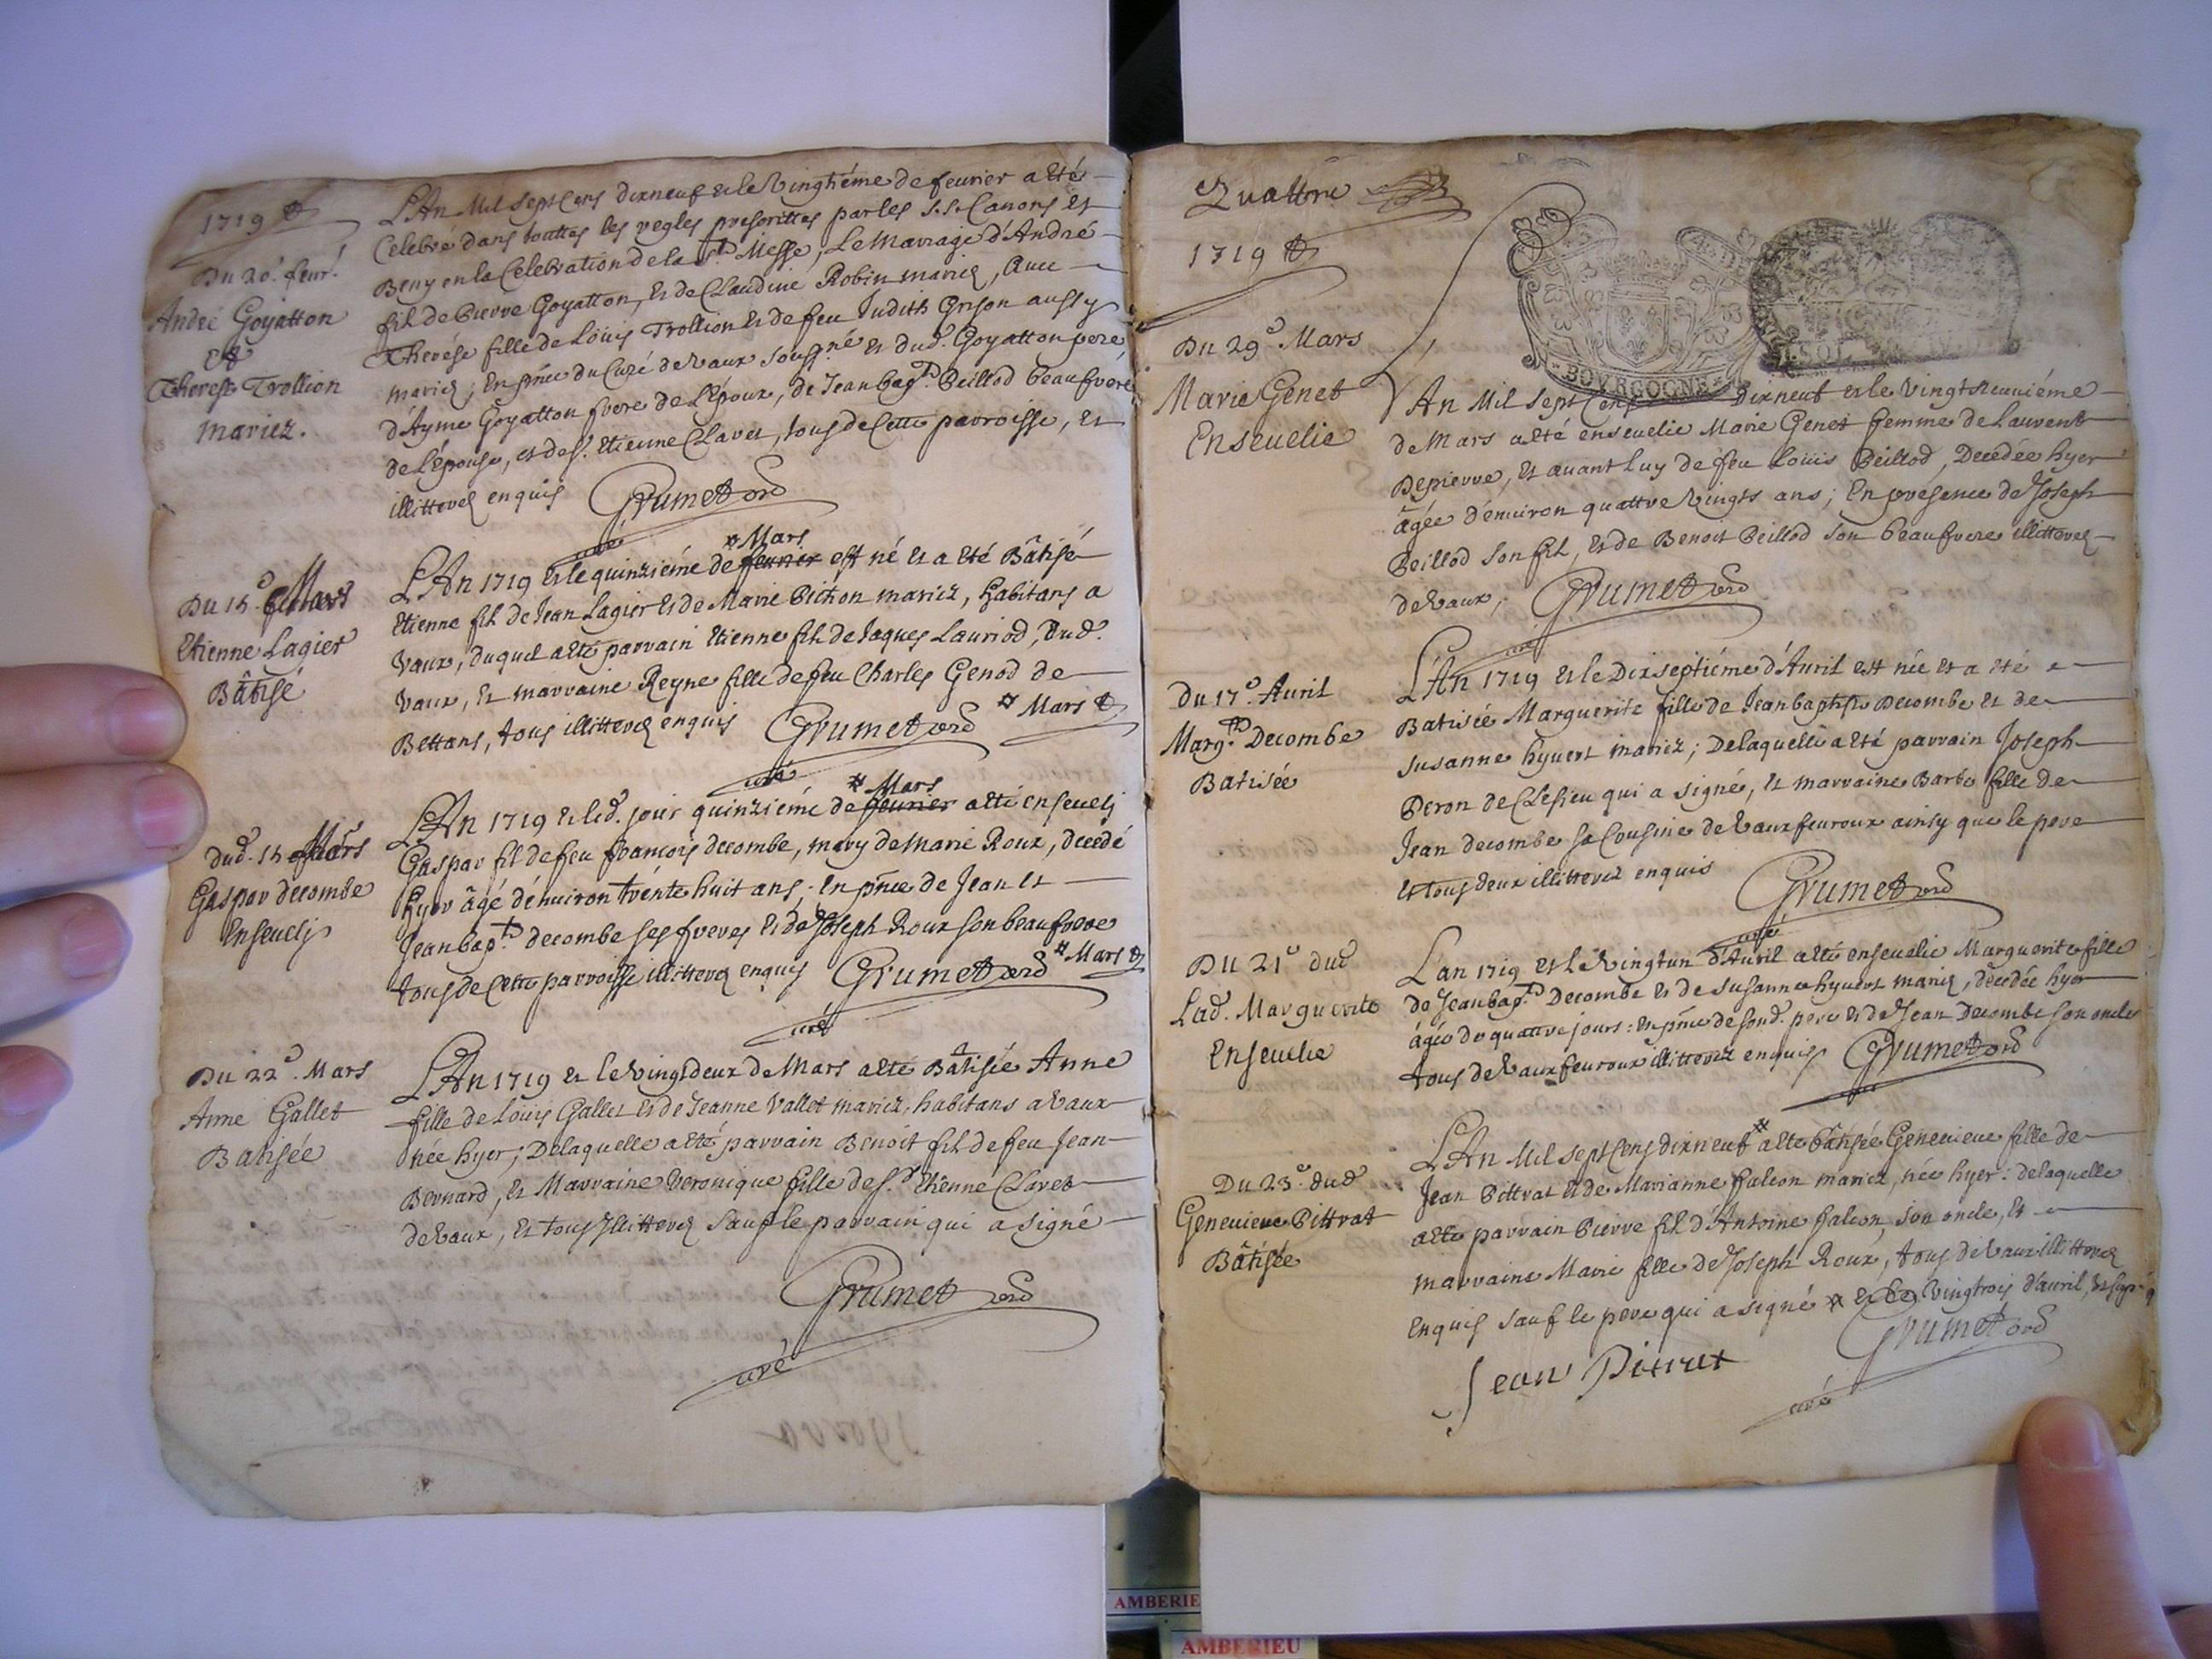 1719
Du 20.e feur.
André Goyatton
et
Therese Trollion
mariez.
L'An Mil sept Cens dixneuf et le Vingtiéme de feurier a eté
Celebré dans touttes les regles prescrittes par les S.S. Canons et
Beny en la Celebration de la S.te Messe, Le Mariage d'André
fil de Pierre Goyatton, et de Claudine Robin mariez, Auec
Therése fille de Loüis Trollion et de feu Judith Grison aussy
mariez; En pñce du Curé de Vaux sousg.né et dud. Goyatton pere,
d'Ayme Goyatton frere de L'Epoux, de Jean bap.te Beillod beaufrere
de L'Epouse, et de S. Etienne Clavet, tous de Cette parroisse, et
illitterez enquis Grumet ord
curé
Du 15.e Mars
Etienne Lagier
Bâtisé
L'An 1719 et le quinziéme de feurier * Mars est né et a eté Bâtisé
Etienne fil de Jean Lagier et de Marie Bichon mariez, habitans a
Vaux, duquel a eté parrain Etienne fil de Jaques Lauriod, dud.
Vaux, et marraine Reyne fille de feu Charles Genod de
Bettans, tous illitterez enquis Grumet ord * Mars
curé
Dud. 15 Mars
Gaspar decombe
Enseueli
L'An 1719 et led. jour quinziéme de feurier * Mars a eté enseueli
Gaspar fil de feu francois decombe, mary de Marie Roux, decedé
hyer âgé d'enuiron trente huit ans; En pñce de Jean et
Jean bap.te decombe ses freres et de Joseph Roux son beaufrere
tous de Cette parroisse illitterez enquis Grumet ord * Mars
curé
Du 22.e Mars
Anne Gallet
Batisée
L'An 1719 et le Vingtdeux de Mars a eté Bâtisée Anne
fille de Louis Gallet et de Jeanne Vallet mariez, habitans a Vaux
née hyer; De laquelle a eté parrain Benoit fil de feu Jean
Bernard, et Marraine Veronique fille de S.r Etienne Clavet
de Vaux, et tous Illitterez Sauf le parrain qui a signé
Grumet ord
curé
Quattre
1719
BOVRGOGNE
Du 29.e Mars
Marie Genet
Enseuelie
L'An Mil Sept Cens Dixneuf et le Vingtneuuiéme
de Mars a eté enseuelie Marie Genet femme de Laurent
Depierre, et auant Luy de feu Loüis Beillod, Decedée hyer
âgée d'enuiron quattre Vingts ans; En présence de Joseph
Beillod Son fil, et de Benoit Beillod son beaufrere illitterez
de Vaux, Grumet ord
curé
Du 17.e Auril
Marg.te Decombe
Batisée
L'An 1719 et le Dixseptiéme d'Auril est née et a eté
Batisée Marguerite fille de Jean baptiste Decombe et de
Susanne hyuert mariez; De laquelle a eté parrain Joseph
Peron de Clesieu qui a signé, et marraine Barbe fille de
Jean decombe sa Cousine de Vauxfeuroux ainsy que le pere
et tous deux illitterez enquis
Grumet ord
curé
Du 21.e dud
Lad. Marguerite
Enseuelie
L'an 1719 et le Vingtun d'Auril a eté enseuelie Marguerite fille
de Jean bap.te Decombe et de Susanne hyuert mariez, decedée hyer
âgée de quattre jours: En pñce de sond. pere et de Jean Decombe son oncle
tous de Vauxfeuroux illitterez enquis Grumet ord
Du 23.e dud
Genevieue Pittrat
Bâtisée
L'An Mil sept Cens dixneuf * a eté bâtisée Genevieue fille de
Jean Pittrat et de Marianne falcon mariez, née hyer: de laquelle
a eté parrain Pierre fil d'Antoine falcon, son oncle, et
marraine Marie fille de Joseph Roux, tous de Vaux illitterez
enquis sauf le pere qui a signé * et le Vingtrois d'auril,
Grumet ord
Jean Pitrat
curé
AMBERIE
AMBERIEU